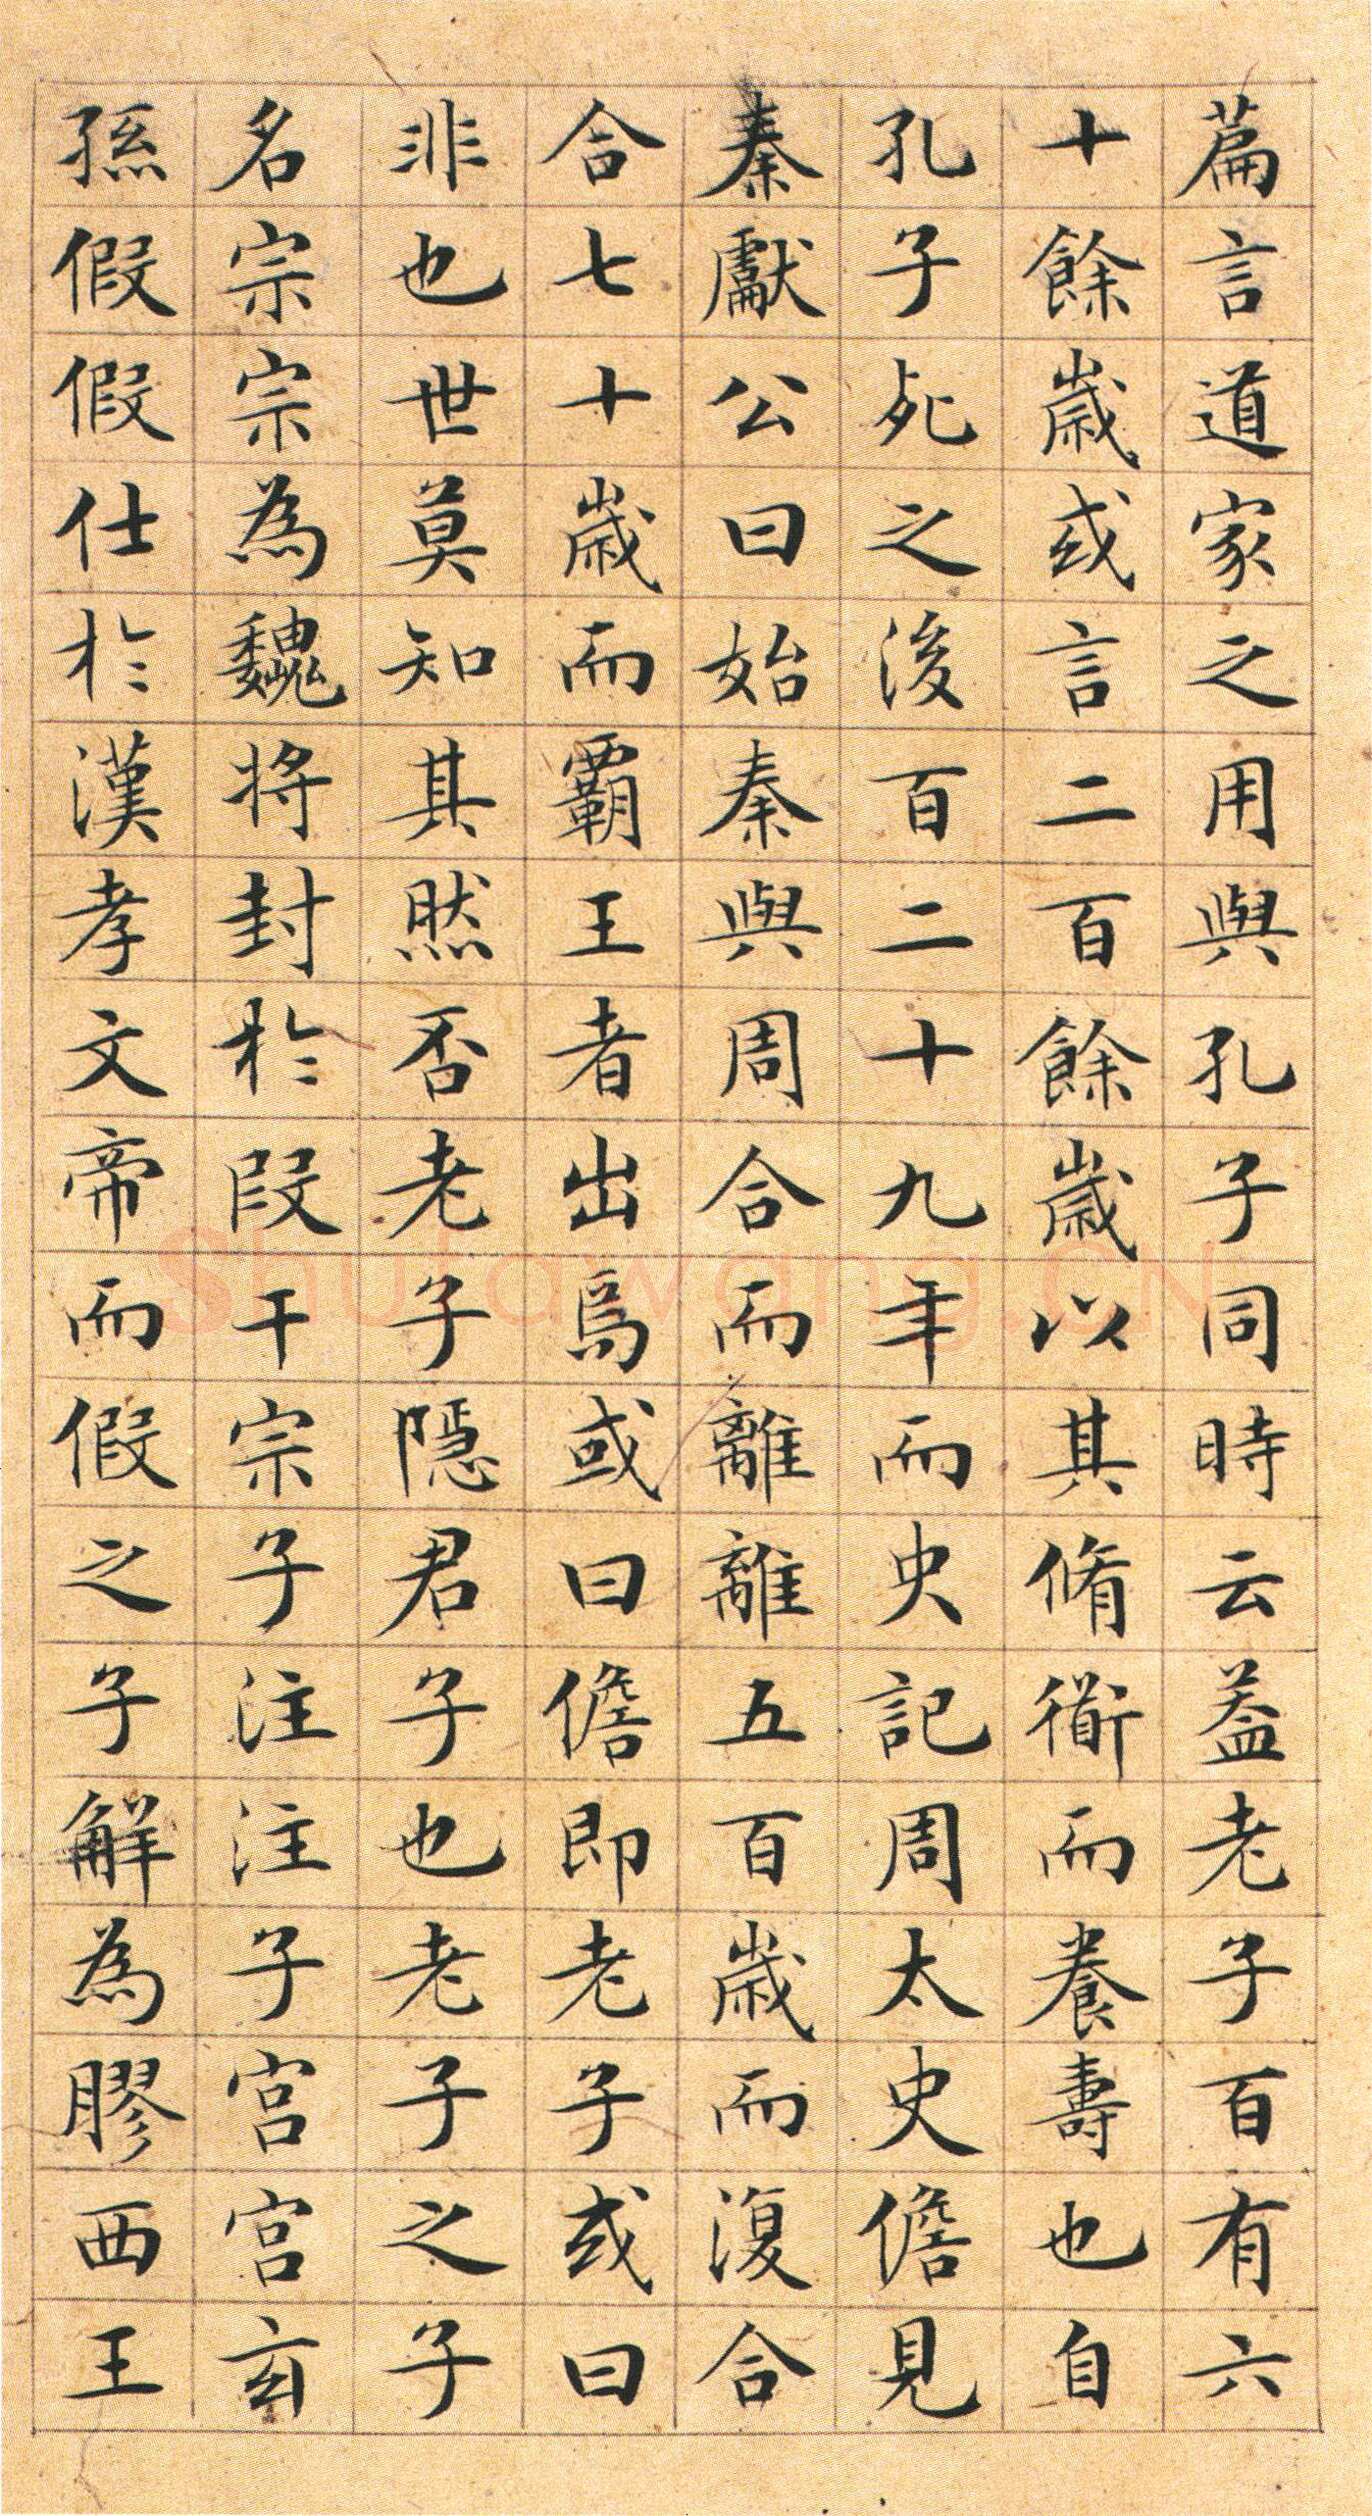 篇言道家之用與孔子同時云蓋老子百有六
十餘歲或言二百餘歲以其脩衜而養壽也自
孔子死之後百二十九年而史記周太史儋見
秦獻公曰始秦與周合而離離五百歲而復合
合七十歲而霸王者出焉或曰儋即老子或曰
非也世莫知其然否老子隱君子也老子之子
名宗宗為魏將封於段干宗子注注子宮宮玄
孫假假仕於漢孝文帝而假之子解為膠西王
Shufawang.CN